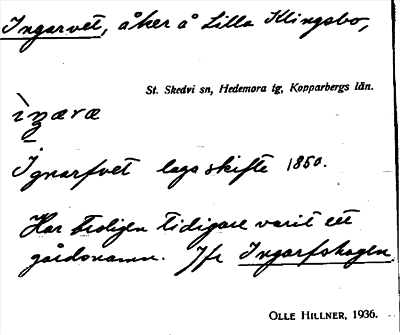 Ingarvet, åker å Lilla Klingsbo,
St. Skedvi sn, Hedemora tg, Kopparbergs län.
Ignarfvet laga skifte 1850.
Har troligen tidigare varit ett
gårdsnamn. Jfr Ingarfshagen.
OLLE HILLNER, 1936.